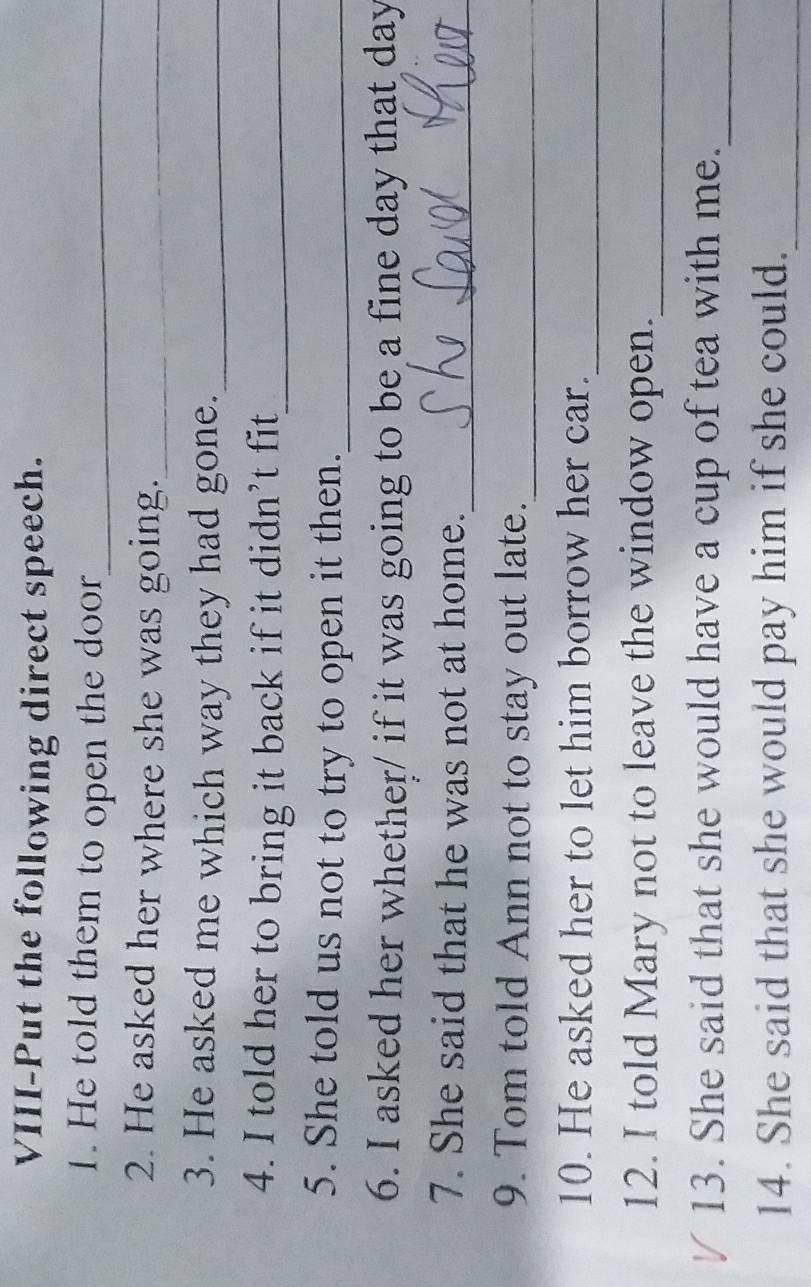 VIII-Put the following direct speech.
1. He told them to open the door
2. He asked her where she was going.
3. He asked me which way they had gone.
4. I told her to bring it back if it didn't fit
5. She told us not to try to open it then.
6. I asked her whether/ if it was going to be a fine day that day
7. She said that he was not at home. She said
9. Tom told Ann not to stay out late.
10. He asked her to let him borrow her car.
12. I told Mary not to leave the window open.
V 13. She said that she would have a cup of tea with me.
14. She said that she would pay him if she could.